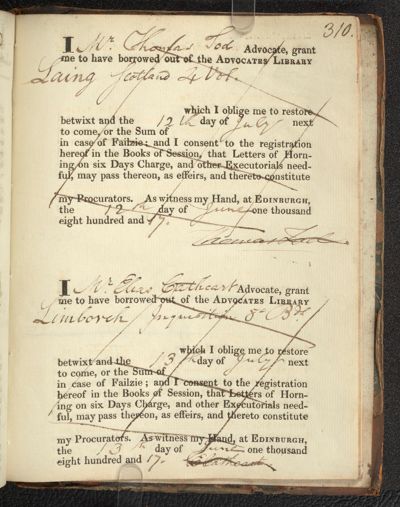 310.
I Mr. Thomas Tod Advocate, grant
me to have borrowed out of the ADVOCATES LIBRARY
Laing Scotland 4 Vol.
which I oblige me to restore
betwixt and the 12th day of July next
to come, or the Sum of
in case of Failzie; and I consent to the registration
hereof in the Books of Session, that Letters of Horn-
ing, on six Days Charge, and other Executorials need-
ful, may pass thereon, as effeirs, and thereto constitute
my Procurators. As witness my Hand, at EDINBURGH,
the 12th day of June one thousand
eight hundred and 17.
Thomas Tod
I Mr. Elias Cathcart Advocate, grant
me to have borrowed out of the ADVOCATES LIBRARY
Limborch Inquisition 8o
which I oblige me to restore
betwixt and the 13th day of July next
to come, or the Sum of
in case of Failzie; and I consent to the registration
hereof in the Books of Session, that Letters of Horn-
ing on six Days Charge, and other Executorials need-
ful, may pass thereon, as effeirs, and thereto constitute
my Procurators. As witness my Hand, at EDINBURGH,
the 13th day of June one thousand
eight hundred and 17. E Cathcart